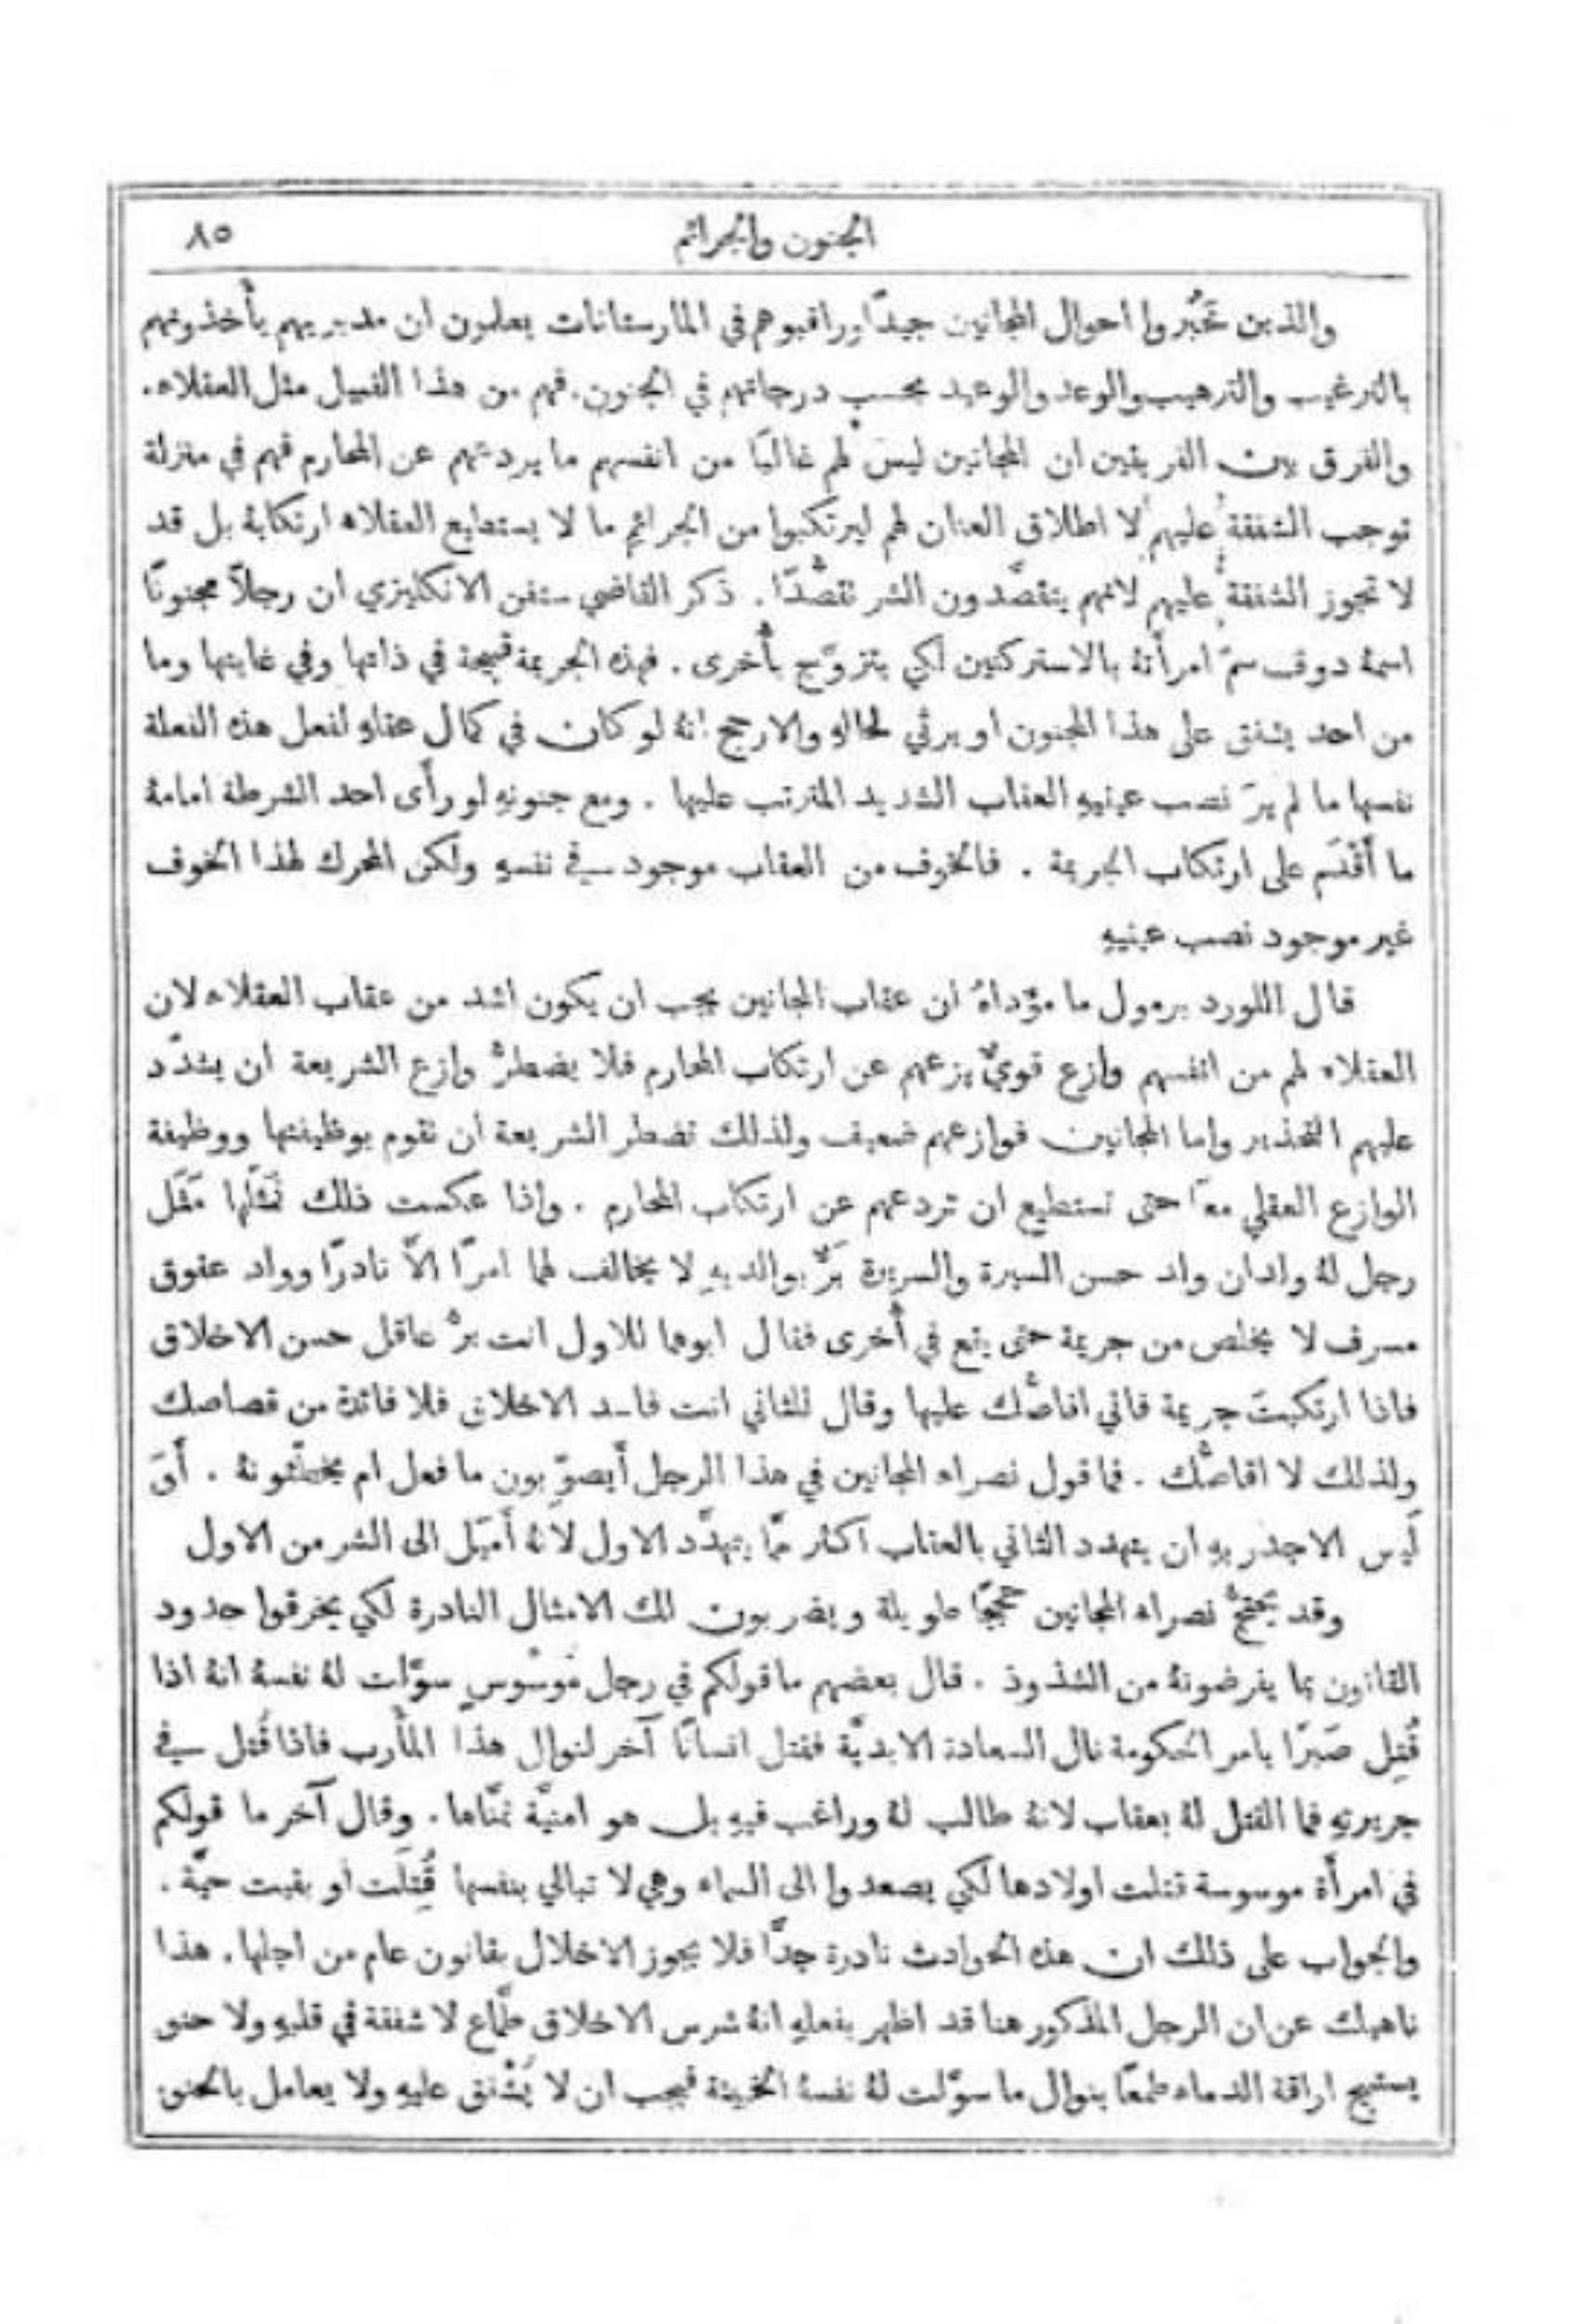 الجنون والجرائم ٨٥
والذين تَخبَّروا احوال المجانين جيدًا وراقبوهم في المارستانات يعلمون ان مدبريهم يأخذونهم
بالترغيب والترهيب والوعد والوعيد بحسب درجاتهم في الجنون. فهم من هذا القبيل مثل العقلاء.
والفرق بين الفريقين ان المجانين ليس لهم غالبًا من انفسهم ما يردعهم عن المحارم فهم في منزلة
توجب الشفقة عليهم لا اطلاق العنان لهم ليرتكبوا من الجرائم ما لا يستطيع العقلاء ارتكابهُ بل قد
لا تجوز الشفقة عليهم لانهم يتقصَّدون الشر تقصُّدًا. ذكر القاضي ستفن الانكليزي ان رجلاً مجنونًا
اسمهُ دوف سمّ امرأتهُ بالاستركنين لكي يتزوَّج بأُخرى. فهذه الجريمة قبيحة في ذاتها وفي غايتها وما
من احد يشفق على هذا المجنون او يرثي لحالهِ والارجح انهُ لو كان في كمال عقلهِ لفعل هذه الفعلة
نفسها ما لم يرَ نصب عينيهِ العقاب الشديد المترتب عليها. ومع جنونهِ لو رأى احد الشرطة امامهُ
ما أَقْدَم على ارتكاب الجريمة. فالخوف من العقاب موجود في نفسهِ ولكن المحرك لهذا الخوف
غير موجود نصب عينيهِ
قال اللورد برمول ما مؤَدَّاهُ ان عقاب المجانين يجب ان يكون اشد من عقاب العقلاء لان
العقلاء لهم من انفسهم وازع قويٌّ يزعهم عن ارتكاب المحارم فلا يضطرُّ وازع الشريعة ان يشدّد
عليهم التحذير واما المجانين فوازعهم ضعيف ولذلك تضطر الشريعة ان تقوم بوظيفتها ووظيفة
الوازع العقلي معًا حتى تستطيع ان تردعهم عن ارتكاب المحارم. واذا عكست ذلك فمَثَلها مَثَل
رجل لهُ ولدان ولد حسن السيرة والسريرة بَرٌّ بوالديهِ لا يخالف لهما امرًا الاَّ نادرًا وولد عقوق
مسرف لا يخلص من جريمة حتى يقع في أُخرى فقال ابوهما للاول انت برٌّ عاقل حسن الاخلاق
فاذا ارتكبتَ جريمة فاني اقاصُّك عليها وقال للثاني انت فاسد الاخلاق فلا فائدة من قصاصك
ولذلك لا اقاصُّك. فما قول نصراء المجانين في هذا الرجل أَيصوّبون ما فعل ام يخطّئونهُ. أَوَ
لَيس الاجدر بهِ ان يتهدد الثاني بالعقاب اكثر ممَّا يتهدَّد الاول لانهُ أَميَل الى الشر من الاول
وقد يحتجُّ نصراء المجانين حججًا طويلة ويضربون لك الامثال النادرة لكي يخرقوا حدود
القانون بما يفرضونهُ من الشذوذ. قال بعضهم ما قولكم في رجل مُوَسْوَس سوَّلت لهُ نفسهُ انهُ اذا
قُتِل صَبرًا بامر الحكومة نال السعادة الابديَّة فقتل انسانًا آخر لنوال هذا المأرب فاذا قُتل في
جريرتهِ فما القتل لهُ بعقاب لانهُ طالب لهُ وراغب فيهِ بل هو امنيَّة تمنَّاها. وقال آخر ما قولكم
في امرأة موسوسة قتلت اولادها لكي يصعدوا الى السماء وهي لا تبالي بنفسها قُتِلَت او بقيت حيَّة.
والجواب على ذلك ان هذه الحوادث نادرة جدًّا فلا يجوز الاخلال بقانون عام من اجلها. هذا
ناهيك عن ان الرجل المذكور هنا قد اظهر بفعلهِ انهُ شرس الاخلاق طمَّاع لا شفقة في قلبهِ ولا حنو
يستبيح اراقة الدماء طمعًا بنوال ما سوَّلت لهُ نفسهُ الخبيثة فيجب ان لا يُشْفق عليهِ ولا يعامل بالحنو